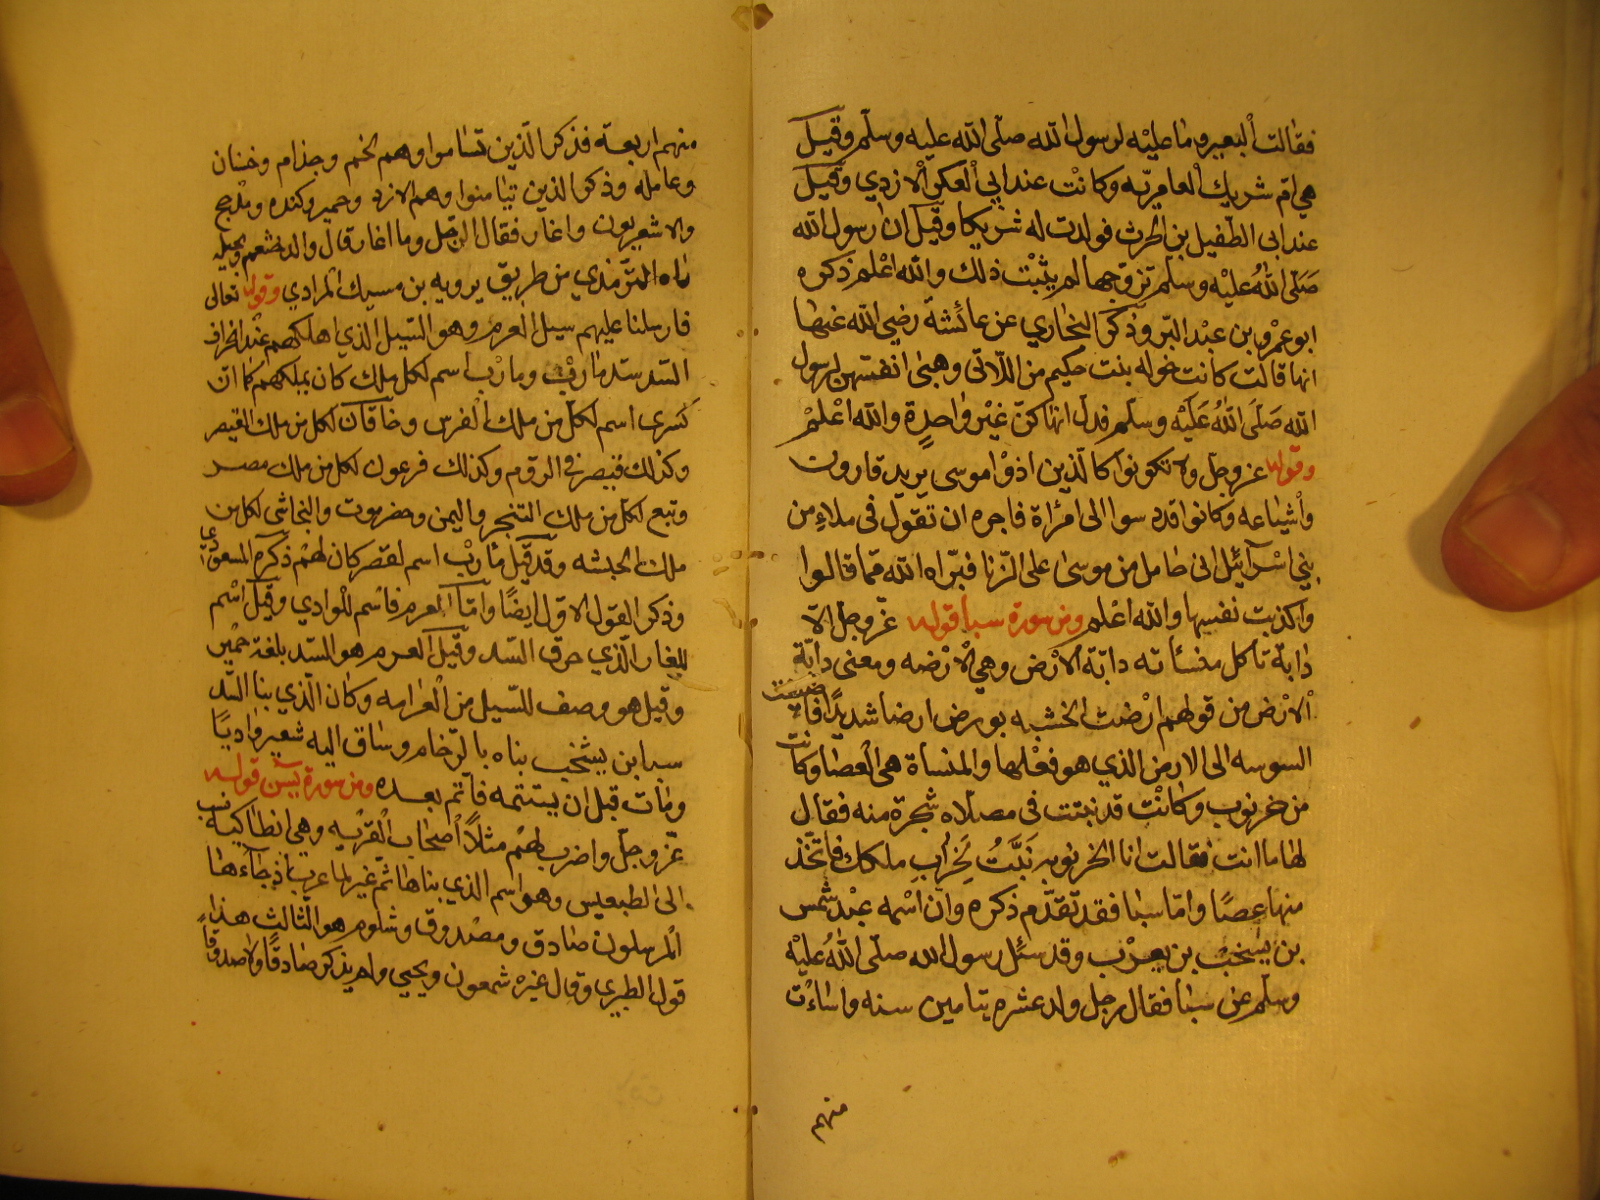 فقالت البعير وما عليه لرسول الله صلى الله عليه وسلم وقيل
هي ام شريك العامريه وكانت عند ابي العكر الازدي وقيل
عند ابى الطفيل بن الحرث فولدت له شريكا وقيل ان رسول الله
صَلّى اللهُ عليْه وسلم تزوجها لم يثبت ذلك والله اعْلم ذكره
ابو عمرو بن عبد البر وذكر البخاري عن عائشة رضي الله عنها
انها قالت كانت خوله بنت حكيم من اللاتى وهبنى انفسهن لرسول
الله صَلّى اللهُ عَلَيْه وسلّم فدل انها كنّ غيْر واحدةٍ والله اعْلمْ
وقوله عز وجل ولا تكونوا كالذين اذوْا موسى يريد قارون
وأشياعه وكانوا قد دسوا الى امرْاة فاجره ان تقول فى ملاءٍ من
بني اسْرآئيْل انى حامل من موسىٰ على الزنا فبرّاه الله مما قالوا
واكذبت نفسها والله اعْلم ومن سورة سبأ قوله عز وجل الّا
دابة تاكل منسأته دابّة الارْض وهي الْارْضه ومعنى دابّة
الارْض من قولهم ارْضت الخشبه يورض ارضا شديدًا فاضيفت
السوسه الى الارض الذي هو فعْلها والمنساة هى العصا وكانت
من خرنوب وكانْت قد نبتت فى مصلاه شجرة منه فقال
لها ما انت فقالت انا الخرنوبه نَبَّتُ لِخَرْابِ ملكك فاتّخذ
منها عصًا وامّا سبا فقد تقدّم ذكره وان اسْمه عبْد شمس
بن يشخبْ بن يعرْب وقد سئل رسول الله صلّى اللهُ عليْه
وسلّم عن سبا فقال رجل ولد عشره تيامين سته واشاءْت
منهم
منهم اربعة فذكر الّذين تشاموا وهم لخم وجذام وغسان
وعامله وذكر الذين تيامنوا وهم الازد وحمير وكنده ومذحج
والاشعريون واغار فقال الرجل وما اغار قال والد خثعم وبجيله
رواه الترمذي من طريق يرويه بن مسيك المرادي وقوله تعالى
فارسلنا عليهم سيل العرم وهو السّيل الذي اهلكهم عنْد اخراف
السّد سدّ مارْب ومارْب اسم لكل ملك كان يملكهم كما ان
كسرى اسم لكل من ملك الفرس وخاقان لكل من ملك القيصر
وكذلك قيصر في الروم وكذلك فرعون لكل من ملك مصر
وتبع لكل من ملك التنجر واليمن وحضرموت والنجاشى لكل من
ملك الحبشه وقد قيْل مأرْب اسم لقصر كان لهمْ ذكره المسعودي
وذكر القول الاول ايضًا وامّا العرم فاسْم للوادي وقيْل اسْم
للفار الّذي حرق السّد وقيْل العرم هو السّد بلغة حمْير
وقيل هو وصف للسّيل من العرامه وكان الّذي بنا السّد
سبا بن يشخب بناه بالرّخام وساق اليه شعير واديًا
ومات قبل ان يستتمه فاتم بعده ومن سورة يٓسٓ قوله
عزّ وجلّ واضرب لهمْ مثلًا أصْحاب القرْيه وهي انطاكية نسب
الى الطبعيس وهو اسم الذي بناها ثمّ غير لما عرب اذ جآءها
المرسلون صادق ومصْدوق وشلوم هو الثالث هذا
قول الطبري وقال غيْره شمعون ويحيي ولم يذكر صادقًا ولا صدوقاً